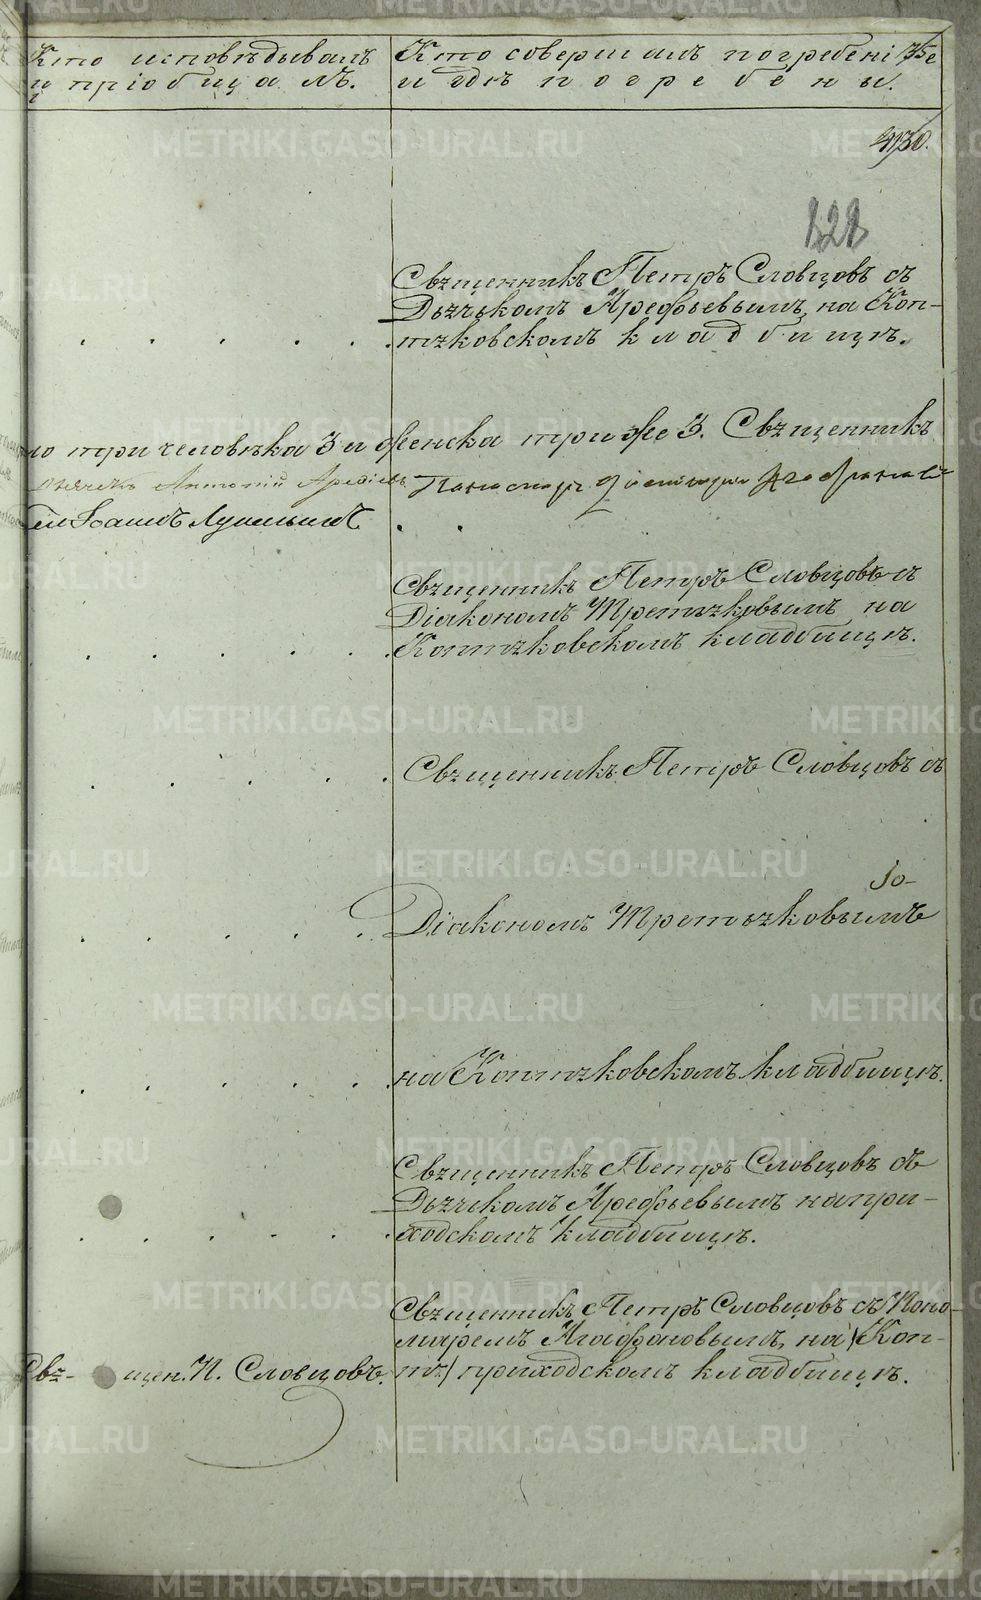 Кто исповѣдывалъ
и пріобщалъ.
Кто совершалъ погребеніе
и гдѣ погребены.
75
430.
828
Священникъ Петръ Словцовъ съ
Дьячкомъ Арефьевымъ, на Коп-
тяковскомъ кладбищѣ.
но три человѣка 3 и женска три же 3. Священникъ
Дьячекъ Антоній Арефьевъ Пономарь
Іоаннъ
Священникъ Петръ Словцовъ съ
Діакономъ Третьяковымъ на
Коптяковскомъ кладбищѣ.
Священникъ Петръ Словцовъ съ
Діакономъ Третьяковымъ
на Коптяковскомъ кладбищѣ.
Священникъ Петръ Словцовъ съ
Дьячкомъ Арефьевымъ на при-
ходскомъ кладбищѣ.
Священникъ Петръ Словцовъ съ Поно-
маремъ Агафоновымъ, на (Коп-
тя) приходскомъ кладбищѣ.
Свя- щен. П. Словцовъ.
METRIKI.GASO-URAL.RU